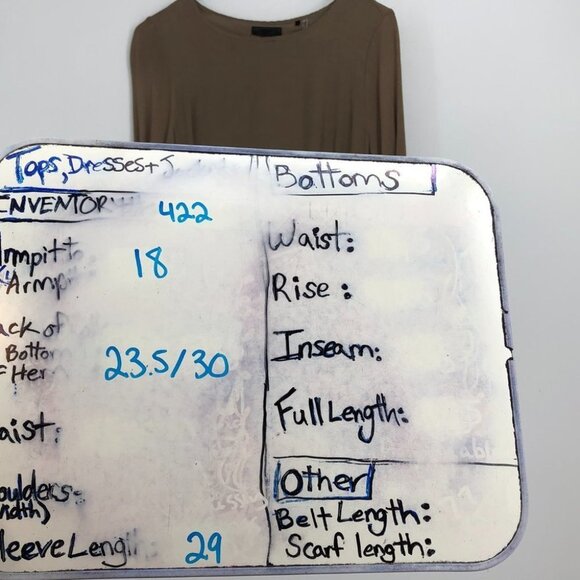 Tops, Dresses +
INVENTOR 422
Armp
18
Botto
23.5/30
Her
aist:
oulders-
leeve Leng 29
Bottoms
Waist:
Rise:
Inseam:
Full Length:
Other
Belt Length:
Scarf length: